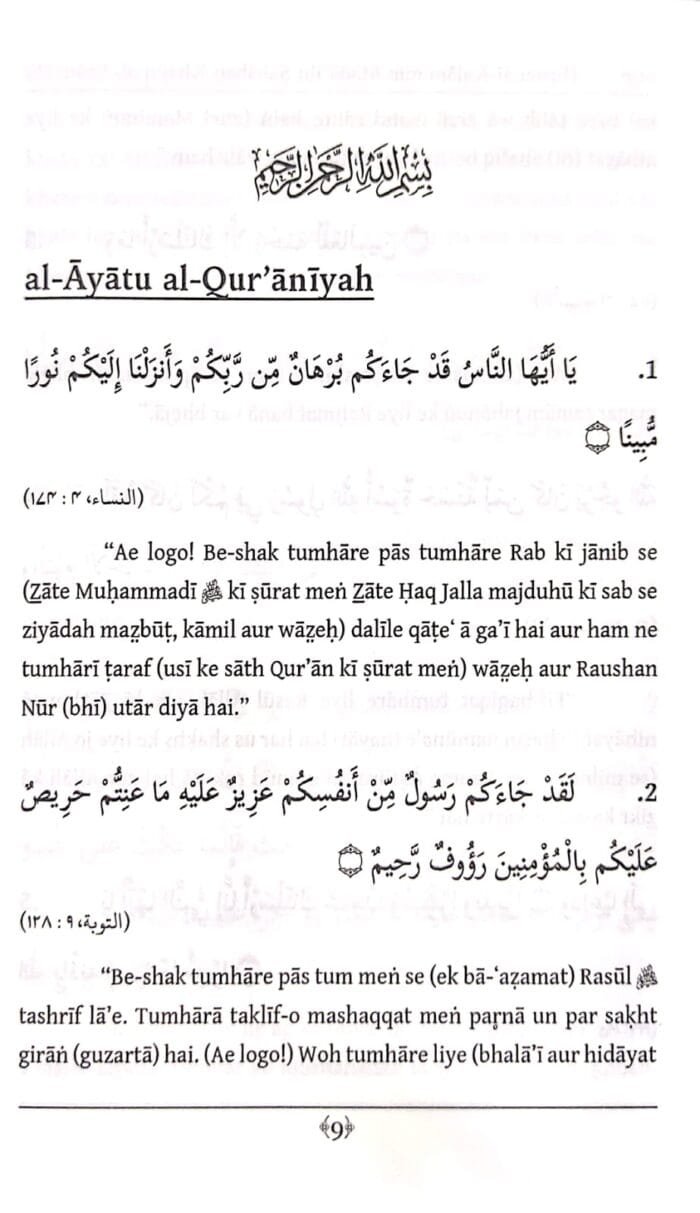 بِسْمِ اللهِ الرَّحْمٰنِ الرَّحِيْمِ
al-Āyātu al-Qur’ānīyah
1. يَا أَيُّهَا النَّاسُ قَدْ جَاءَكُم بُرْهَانٌ مِّن رَّبِّكُمْ وَأَنزَلْنَا إِلَيْكُمْ نُورًا
مُّبِينًا ۝
(النساء، ٤ : ١٧٤)
“Ae logo! Be-shak tumhāre pās tumhāre Rab kī jānib se
(Z̲āte Muḥammadī ﷺ kī ṣūrat meṅ Z̲āte Ḥaq Jalla majduhū kī sab se
ziyādah maz̤būt, kāmil aur wāz̤eḥ) dalīle qāṭe‘ ā ga’ī hai aur ham ne
tumhārī ṭaraf (usī ke sāth Qur’ān kī ṣūrat meṅ) wāz̤eḥ aur Raushan
Nūr (bhī) utār diyā hai.”
2. لَقَدْ جَاءَكُمْ رَسُولٌ مِّنْ أَنفُسِكُمْ عَزِيزٌ عَلَيْهِ مَا عَنِتُّم حَرِيصٌ
عَلَيْكُم بِالْمُؤْمِنِينَ رَؤُوفٌ رَّحِيمٌ ۝
(التوبة، ٩ : ١٢٨)
“Be-shak tumhāre pās tum meṅ se (ek bā-‘aẓamat) Rasūl ﷺ
tashrīf lā’e. Tumhārā taklīf-o mashaqqat meṅ paṛnā un par sak̲h̲t
girāṅ (guzartā) hai. (Ae logo!) Woh tumhāre liye (bhalā’ī aur hidāyat
﴾9﴿